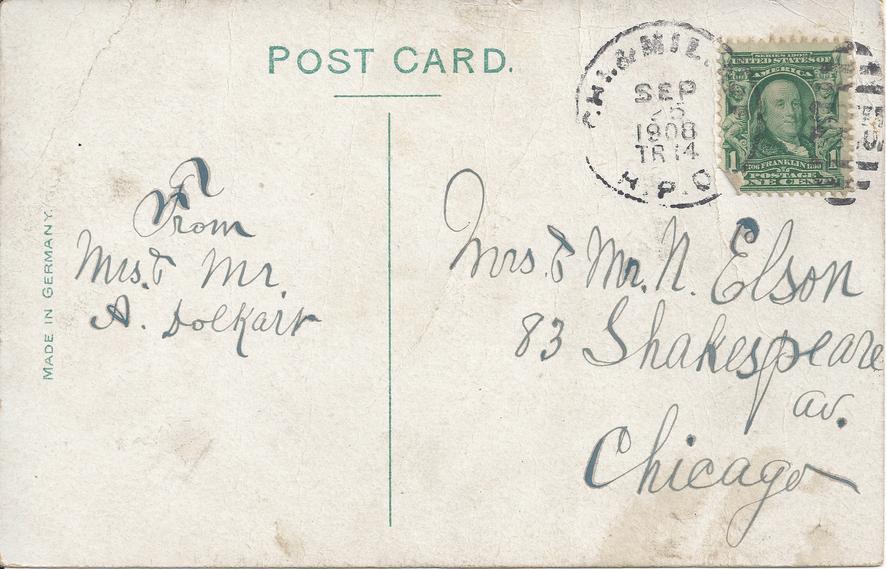 POST CARD.
CHI. & MIL.
SEP
25
1908
TR 14
R.P.O.
SERIES 1902
UNITED STATES OF
AMERICA
1706 FRANKLIN 1790
1 POSTAGE 1
ONE CENT
MADE IN GERMANY.
From
Mrs. & Mr.
A. Dolkart
Mrs. & Mr. N. Elson
83 Shakespeare
av.
Chicago